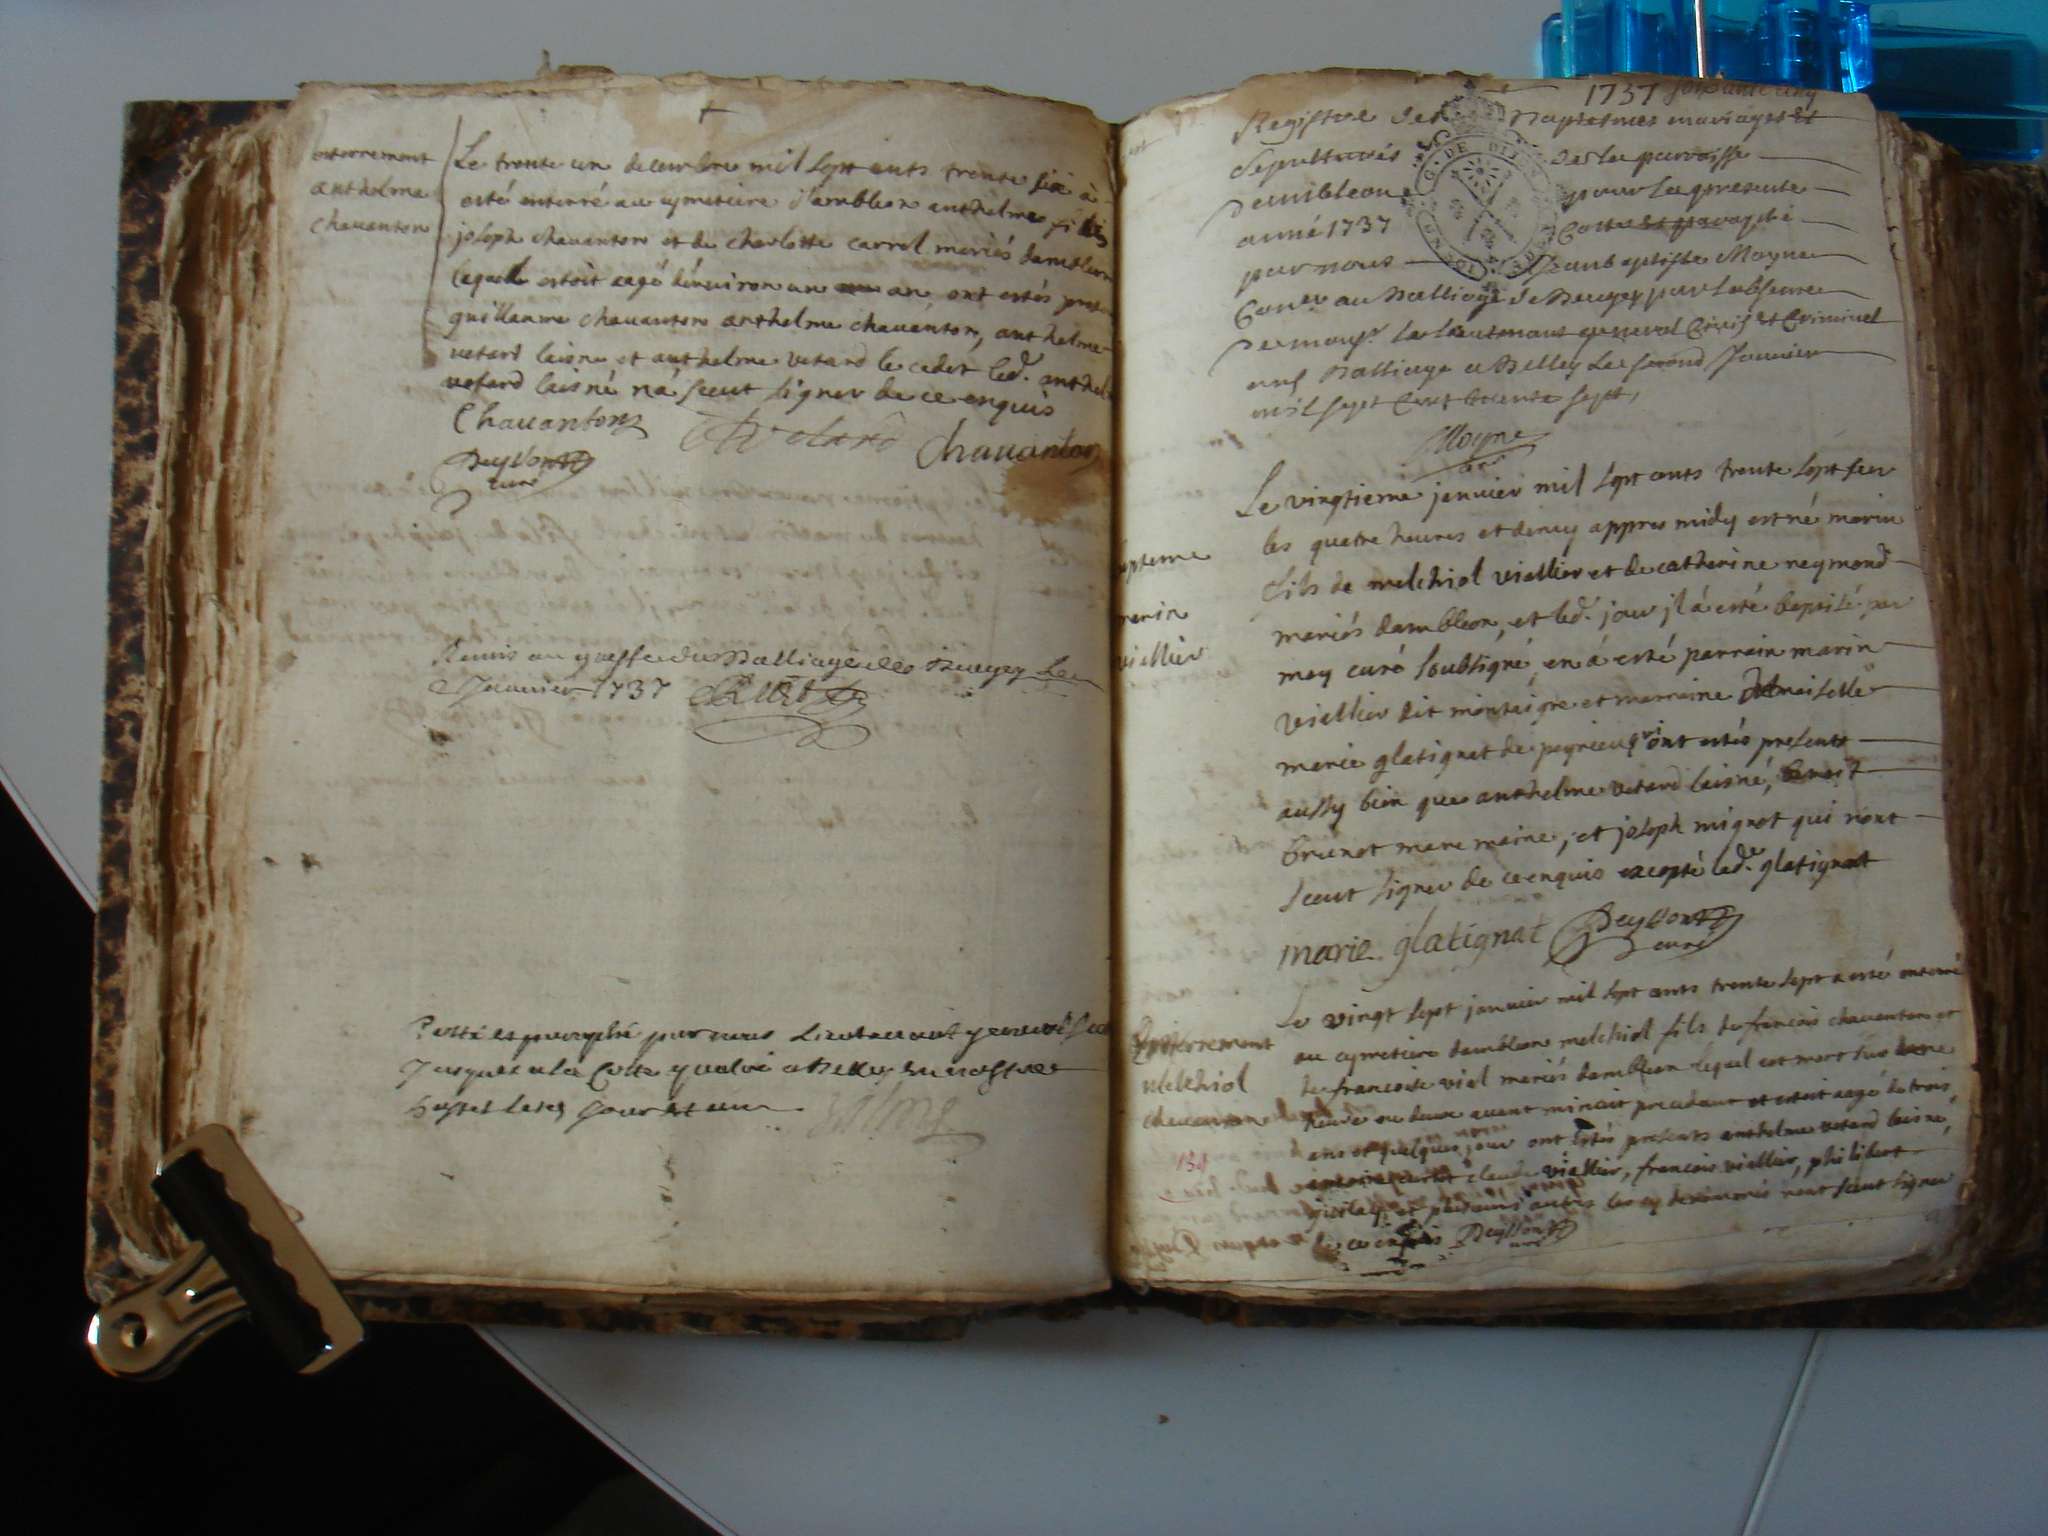 enterrement
anthelme
chavanton
Le trente un decembre mil sept cents trente six à
esté enterré au cymetiere d'ambleon anthelme fils
joseph chavanton et de charlotte carrel mariés dambleon
lequel estoit aagé d'environ un an, ont estés
guillaume chavanton anthelme chavanton, anthelme
vetard laisne et anthelme vetard le cadet led. anthel
vetard laisné na sceut signer de ce enquis
Chavanton
Vetard
Chavanton
Deyssont
curé
Remis au greffe du Balliage de Beugey Le
Janvier 1737
Cotté et paraphé par nous Lieutenant general
Jusques a la Cotte a Belley en nostre
hostel
1737
Registre des Baptesmes mariages et
Sepultures de la parroisse
Dambleon pour la presente
année 1737 Cotté et paraphé
par nous Jean baptiste Moyne
Coner. au Balliage de Beugey pour labsence
De monsr. le Lieutenant general Civil et Criminel
aud Balliage a Belley Le second Janvier
mil sept Cent trente sept,
Moyne
G. DE DIJON
Le vingtieme janvier mil sept cents trente sept sur
les quatre heures et demy appres midy est né marin
fils de melchiol viallier et de catherine reymond
mariés dambleon, et led. jour jl á esté baptisé par
moy curé soubsigné, en á esté parrain marin
viallier dit montaigre et marraine Dlle maiselle
marie glatignat de peyrieu qui ont estés presents
aussy bien que anthelme vetard laisné, benoit
brunet mare maine, et joseph mignot qui nont
sceut signer de ce enquis excepté lade. glatignat
marie glatignat
Deyssont
curé
bapteme
marin
viallier
Le vingt sept janvier mil sept cents trente sept a esté enterré
au cymetiere dambleon melchiol fils de francois chavanton et
de francoise vial mariés dambleon lequel est mort sur une
heure ou deux avant minuit precedant et estoit aagé de trois
ans et quelques jour ont estés presents anthelme vetard laisne,
claude viallier, francois viallier, philibert
et plusieurs autres les cy denommés nont sceut signer
de ce enquis Deyssont
curé
Enterrement
melchiol
chavanton
134